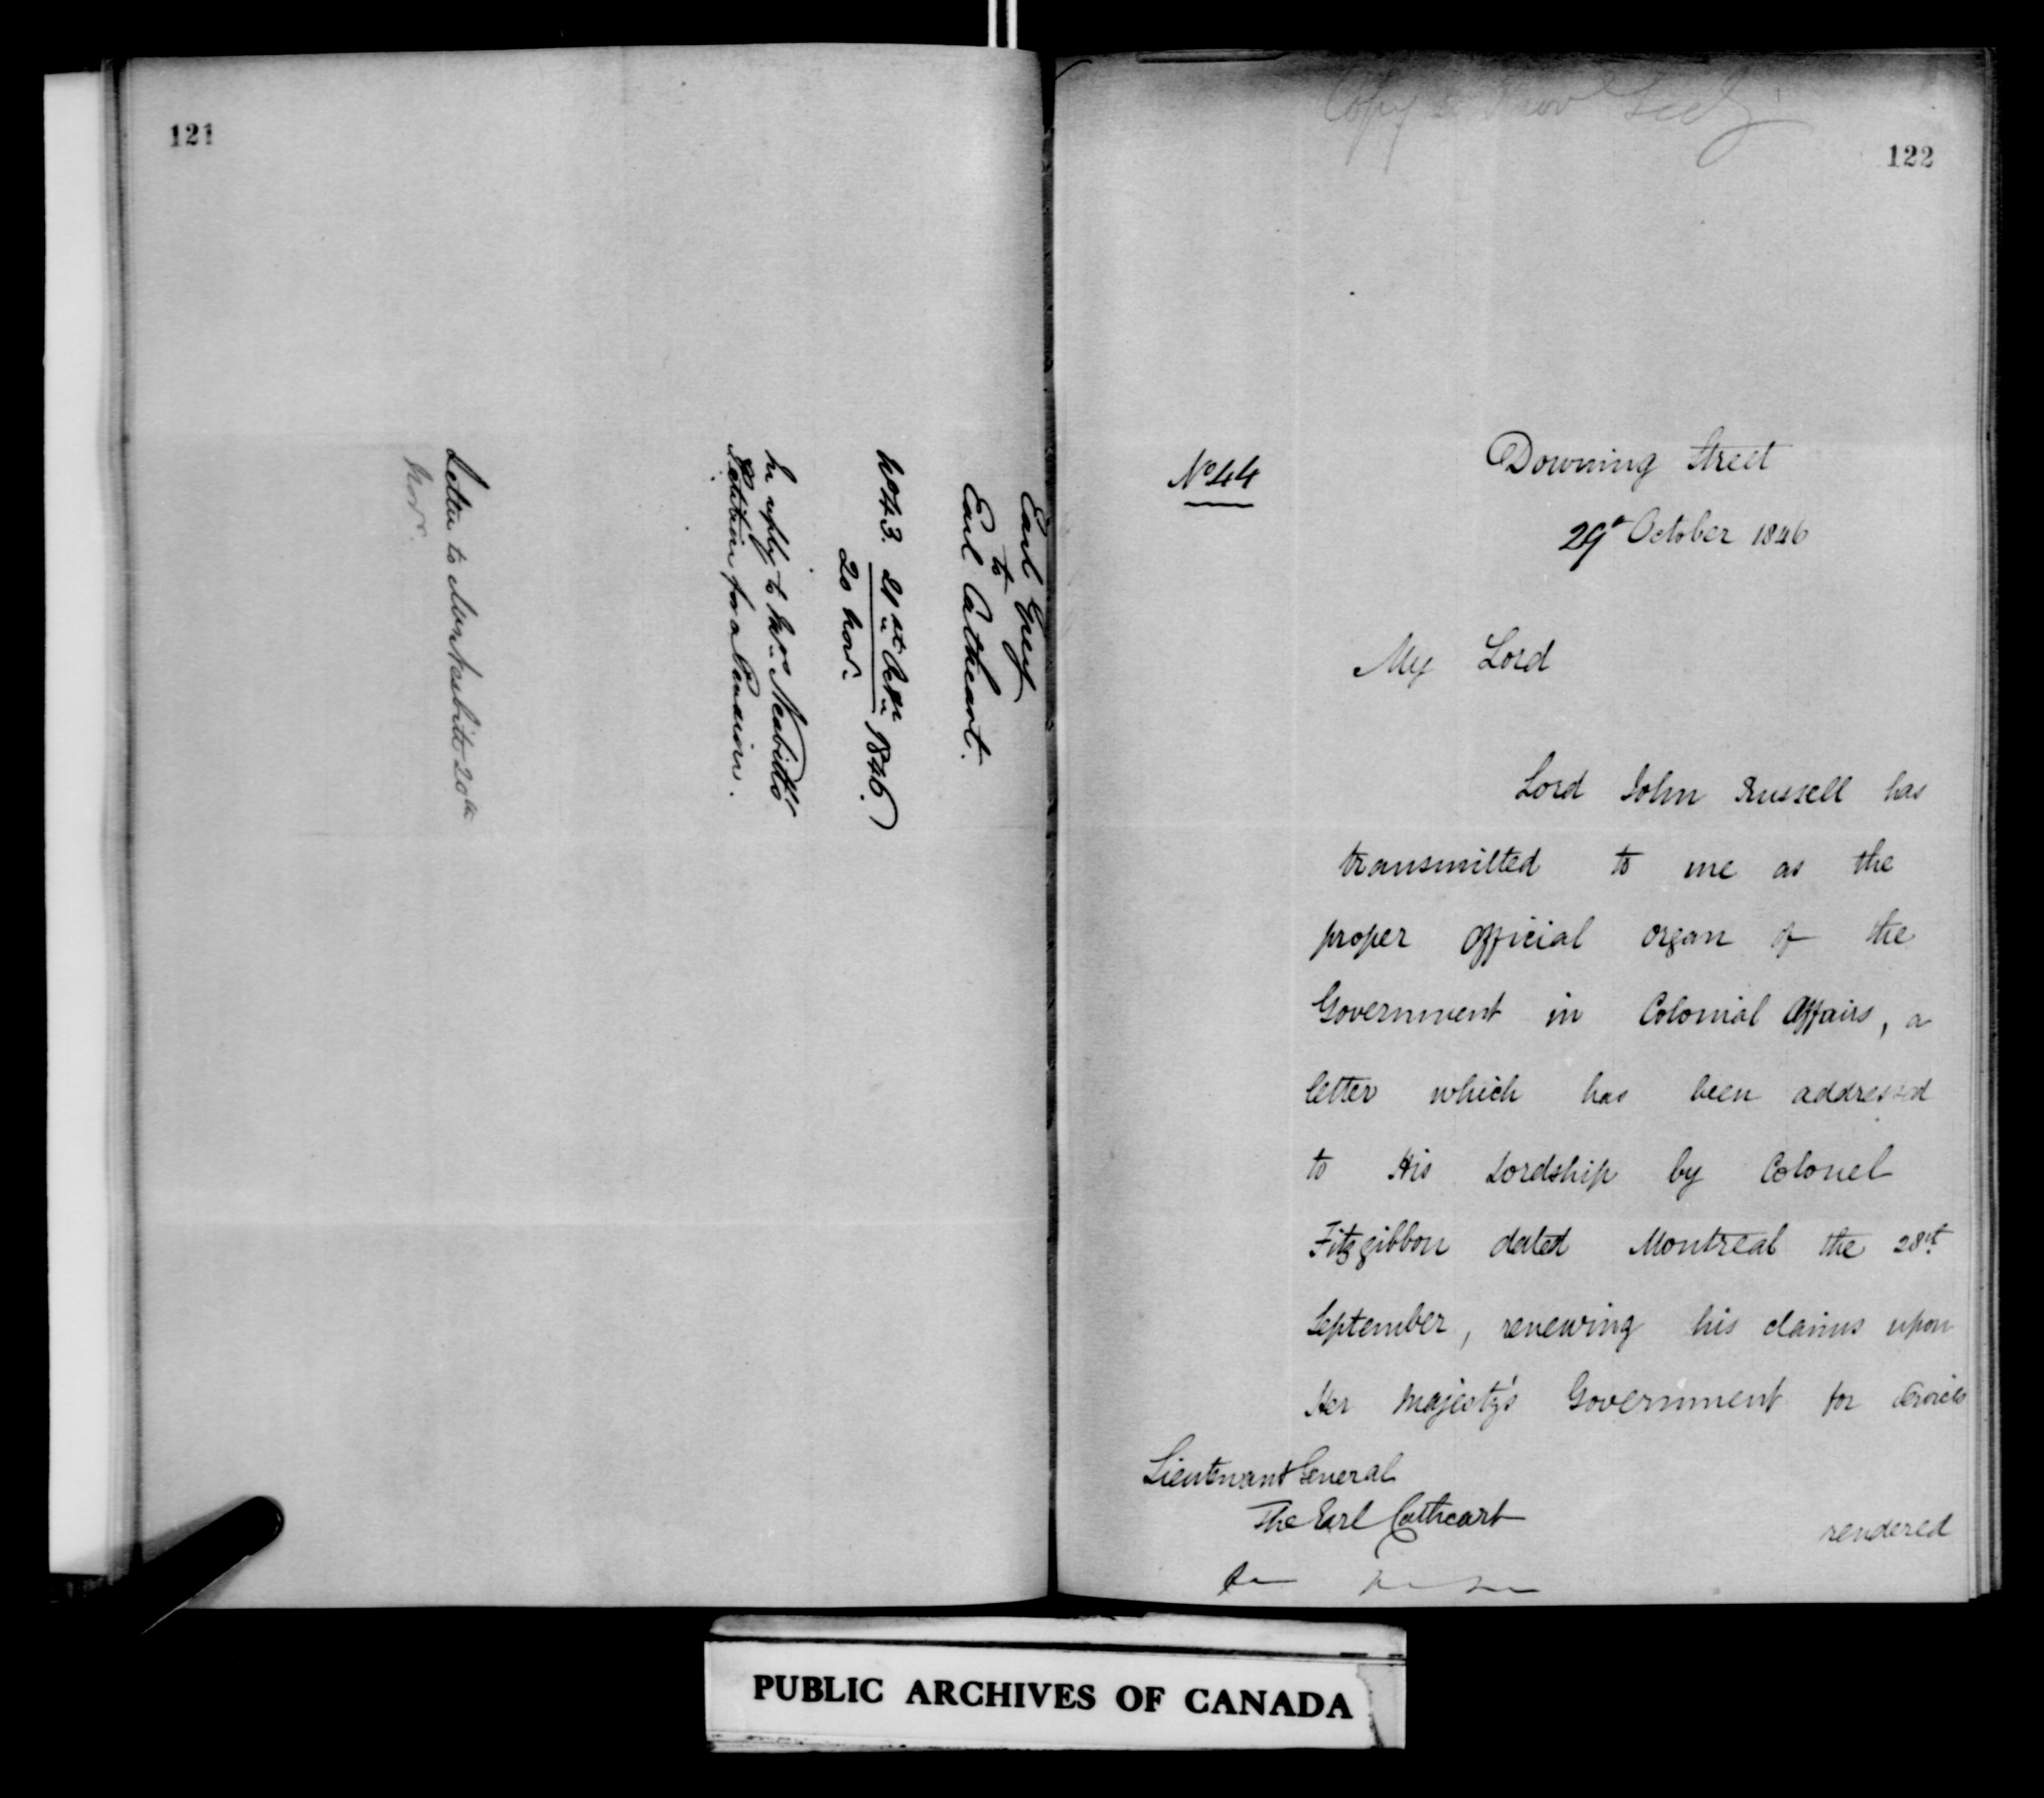 121
Earl Grey
to
Earl Cathcart.
No 43. 21st Octr 1846.
20 Novr.
In reply to Mrs Nesbitt's
Petition for a Pension.
Letter to Mrs Nesbitt 20th
Novr.
Copy to Prov Secy
122
No 44
Downing Street
29th October 1846
My Lord
Lord John Russell has
transmitted to me as the
proper official organ of the
Government in Colonial Affairs, a
letter which has been addressed
to His Lordship by Colonel
Fitzgibbon dated Montreal the 28th
September, renewing his claims upon
Her Majesty's Government for services
Lieutenant General
The Earl Cathcart
rendered
PUBLIC ARCHIVES OF CANADA